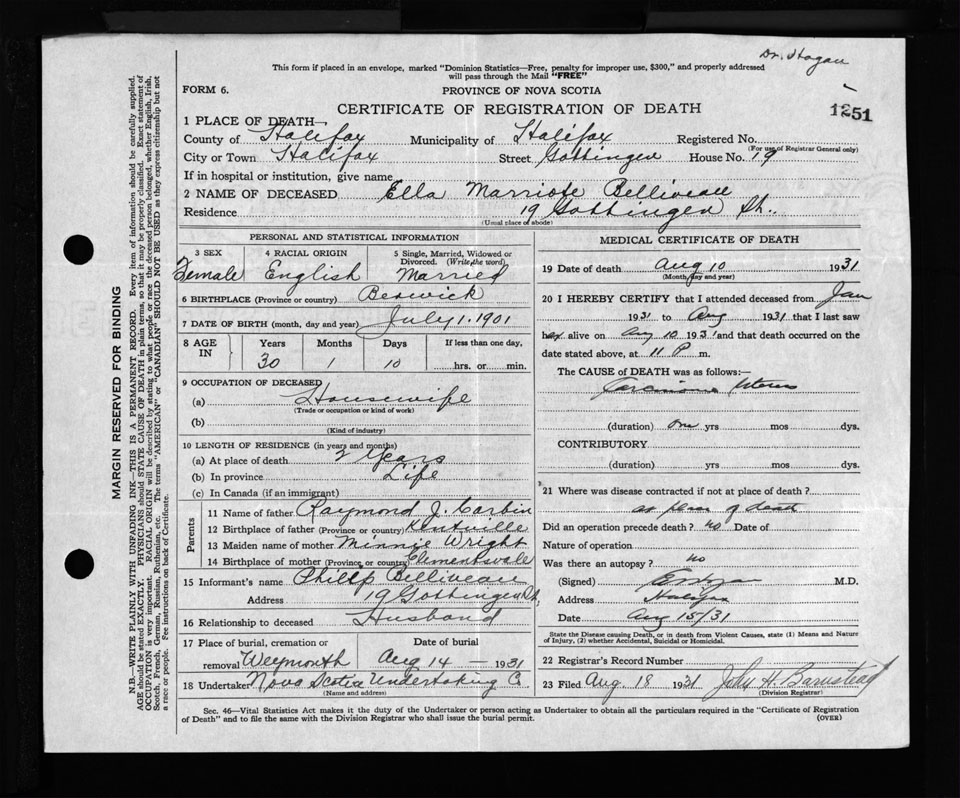 Dr. Hogan
This form if placed in an envelope, marked "Dominion Statistics—Free, penalty for improper use, $300," and properly addressed
will pass through the Mail "FREE"
FORM 6.
PROVINCE OF NOVA SCOTIA
1251
CERTIFICATE OF REGISTRATION OF DEATH
1 PLACE OF DEATH—
County of Halifax Municipality of Halifax Registered No.
(For use of Registrar General only)
City or Town Halifax Street Gottingen House No. 19
If in hospital or institution, give name
2 NAME OF DECEASED Ella Marriote Belliveau
Residence 19 Gottingen St.
(Usual place of abode)
PERSONAL AND STATISTICAL INFORMATION
3 SEX Female
4 RACIAL ORIGIN English
5 Single, Married, Widowed or Divorced. (Write the word) Married
6 BIRTHPLACE (Province or country) Berwick
7 DATE OF BIRTH (month, day and year) July 1. 1901
8 AGE IN Years 30 Months 1 Days 10 If less than one day, hrs. or min.
9 OCCUPATION OF DECEASED
(a) Housewife
(Trade or occupation or kind of work)
(b)
(Kind of industry)
10 LENGTH OF RESIDENCE (in years and months)
(a) At place of death 2 Years
(b) In province Life
(c) In Canada (if an immigrant)
Parents
11 Name of father Raymond J. Corbin
12 Birthplace of father (Province or country) Kentville
13 Maiden name of mother Minnie Wright
14 Birthplace of mother (Province or country) Clementsvale
15 Informant's name Philip Belliveau
Address 19 Gottingen St.
16 Relationship to deceased Husband
17 Place of burial, cremation or removal Weymouth
Date of burial Aug 14 — 1931
18 Undertaker Nova Scotia Undertaking Co
(Name and address)
MEDICAL CERTIFICATE OF DEATH
19 Date of death Aug 10 1931
(Month, day and year)
20 I HEREBY CERTIFY that I attended deceased from Jan
1931 to Aug 1931 that I last saw
her alive on Aug 10 1931 and that death occurred on the
date stated above, at 11 P m.
The CAUSE of DEATH was as follows:—
Carcinoma Uterus
(duration) one yrs mos dys.
CONTRIBUTORY
(duration) yrs mos dys.
21 Where was disease contracted if not at place of death?
at place of death
Did an operation precede death? no Date of
Nature of operation
Was there an autopsy? no
(Signed) M.D.
Address Halifax
Date Aug 15/31
State the Disease causing Death, or in death from Violent Causes, state (1) Means and Nature
of Injury, (2) whether Accidental, Suicidal or Homicidal.
22 Registrar's Record Number
23 Filed Aug. 18 1931 John H. Barnstead
(Division Registrar)
Sec. 46—Vital Statistics Act makes it the duty of the Undertaker or person acting as Undertaker to obtain all the particulars required in the "Certificate of Registration
of Death" and to file the same with the Division Registrar who shall issue the burial permit.
(OVER)
MARGIN RESERVED FOR BINDING
N.B.—WRITE PLAINLY WITH UNFADING INK—THIS IS A PERMANENT RECORD. Every item of information should be carefully supplied.
AGE should be stated EXACTLY. PHYSICIANS should STATE CAUSE OF DEATH in plain terms, so that it may be properly classified. Exact statement of
OCCUPATION is very important. RACIAL ORIGIN will be described by stating to what people or race the deceased person belonged, whether English, Irish,
Scotch, French, German, Russian, Ruthenian, etc. The terms "AMERICAN" or "CANADIAN" SHOULD NOT BE USED as they express citizenship but not
a race or people. Fee instructions on back of Certificate.